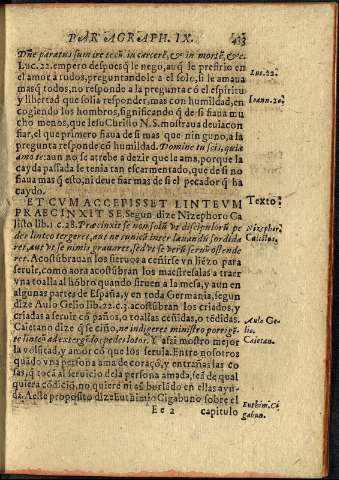 PARAGRAPH. IX. 433
Dñe paratus sum ire tecũ in carcerẽ, & in mortẽ, &c.
Luc. 22. empero despues q̃ le nego, aunq̃ le prefirio en
el amor a todos, preguntandole a el solo, si le amaua
mas q̃ todos, no responde a la pregunta cõ el espiritu
y libertad que solia responder, mas con humildad, en
cogiendo los hombros, significando q̃ de si fiaua mu
cho menos, que Iesu Christo N. S. mostraua deuia con
fiar, el que primero fiaua de si mas que ninguno, a la
pregunta responde cõ humildad. Domine tu scis, quia
amo te: aun no se atrebe a dezir que le ama, porque la
cayda passada le tenia tan escarmentado, que de si no
fiaua mas q̃ esto, ni deue fiar mas de si el pecador q̃ ha
caydo.
ET CVM ACCEPISSET LINTEVM
PRAECINXIT SE. Segun dize Nizephoro Ca
listo lib. 1. c. 28. Præcinxit se non solũ vt discipulorũ pe
des linteo tergeret, aut ne tunicã inter lauandũ sordida
ret, aut vt se nimis grauaret, sed vt se verũ seruũ ostende
ret. Acostũbrauan los sieruos a ceñirse vn liẽzo para
seruir, como aora acostũbran los maestresalas a traer
vna toalla al hõbro quando siruen a la mesa, y aun en
algunas partes de España, y en toda Germania, segun
dize Aulo Gelio lib. 22. c. 3. acostũbran los criados, y
criadas a seruir cõ paños, o toallas ceñidas, o tẽdidas.
Caietano dize q̃ se ciño, ne indigeres ministro porrigẽ-
te linteũ ad extergẽdos pedes lotor. Y assi mostro mejor
la volũtad, y amor cõ que los seruia. Entre nosotros
quãdo vna persona ama de coraçõ, y entrañas las co
sas, q̃ tocã al seruicio de la persona amada, seã de qual
quiera cõdiciõ, no quiere ni cõsurlado en ellas ayu-
da. A este proposito dize Euthimio Gigabuno sobre el
Ee 2 capitulo
Luc. 22.
Ioann. 20.
Texto:
Nizephor.
Calistus.
Aulo Ge-
lio.
Caietan.
Euthim. Gi
gabun.